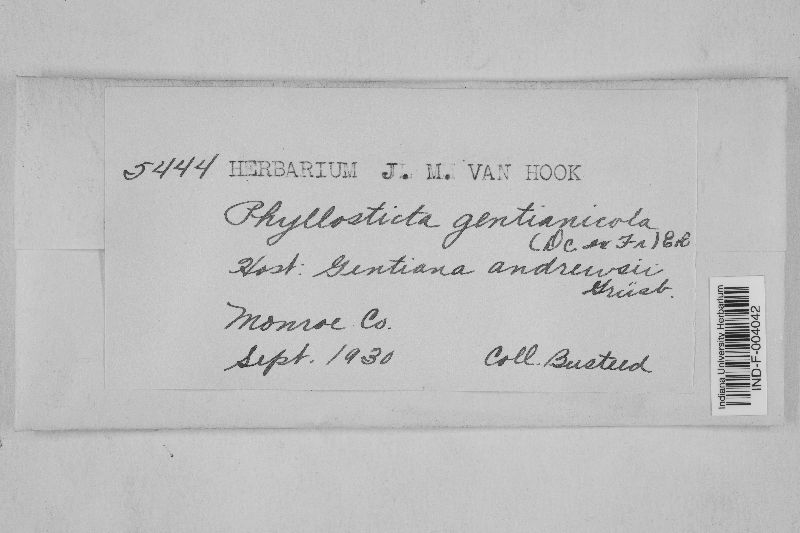 5444 HERBARIUM J. M. VAN HOOK
Phyllosticta gentianicola
(DC. ex Fr) E&E
Host: Gentiana andrewsii
Griseb.
Monroe Co.
Sept. 1930 Coll. Busteed
Indiana University Herbarium
IND-F-004042